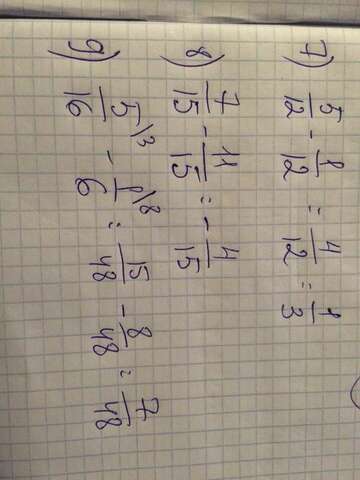 7) 5/12 - 1/12 = 4/12 = 1/3
8) 7/15 - 11/15 = - 4/15
9) 5\3/16 - 1\8/6 = 15/48 - 8/48 = 7/48